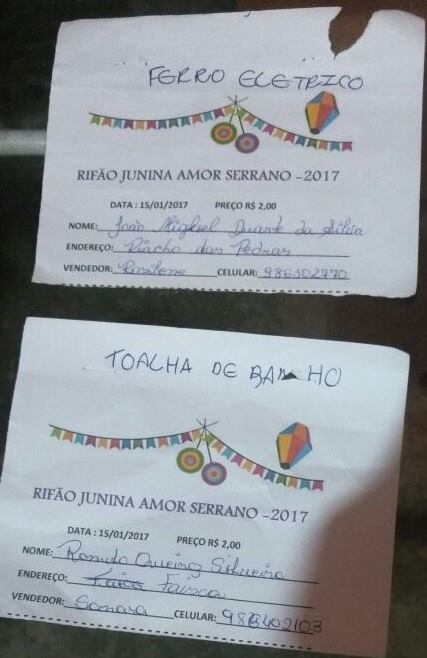 FERRO ELETRICO
RIFÃO JUNINA AMOR SERRANO -2017
DATA : 15/01/2017 PREÇO R$ 2,00
NOME: João Miguel Duarte da Silva
ENDEREÇO: Riacho das Pedras
VENDEDOR: Rosilene CELULAR: 986302770
TOALHA DE BANHO
RIFÃO JUNINA AMOR SERRANO -2017
DATA : 15/01/2017 PREÇO R$ 2,00
NOME: Romulo Queiroz Silveira
ENDEREÇO: Faisca
VENDEDOR: CELULAR: